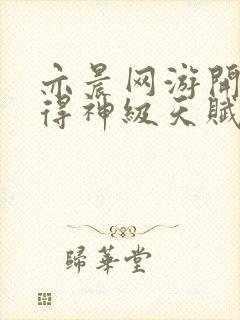 亦晨网游開
得神級天賦
歸華堂